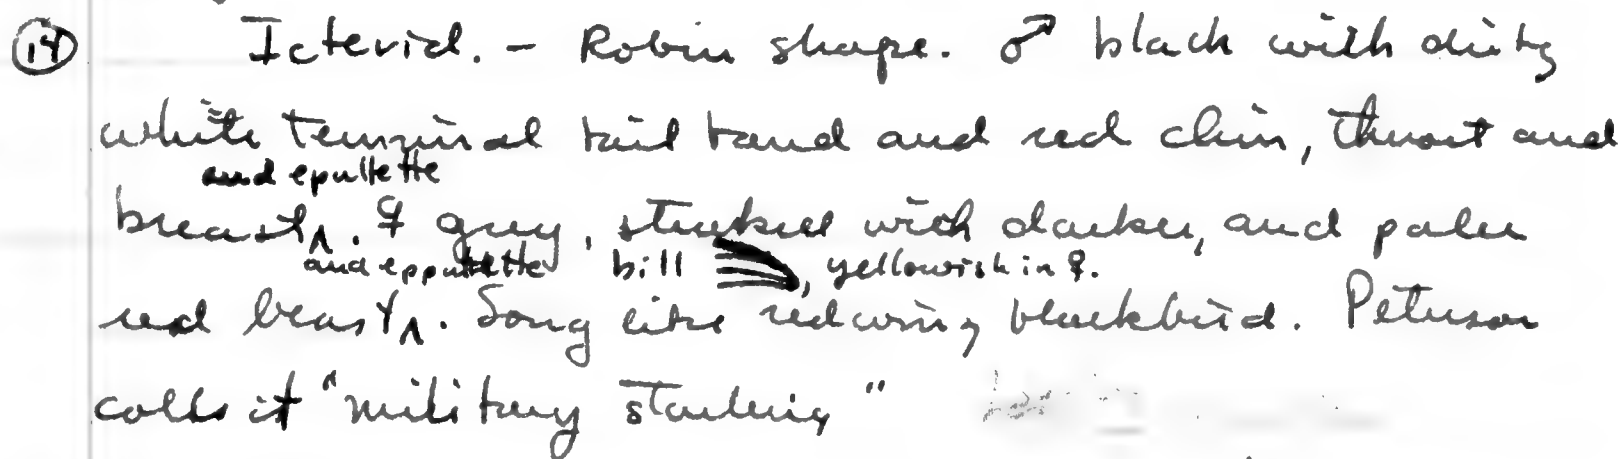 14 Icterid. - Robin shape. ♂ black with dirty
white terminal tail band and red chin, throat and
and epullette
breast ^. ♀ grey, streaked with darker, and paler
and eppullette bill , yellowish in ♀.
red beast ^. Song like redwing blackbird. Peterson
calls it "military starling"